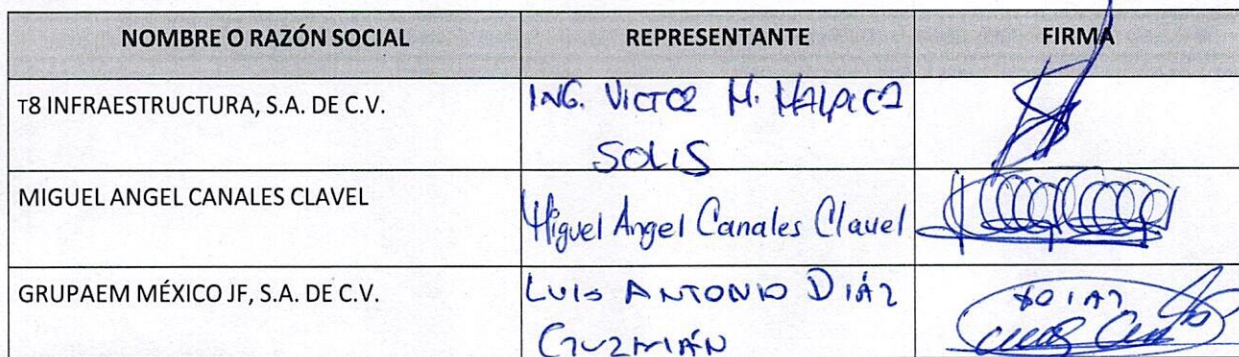 NOMBRE O RAZÓN SOCIAL REPRESENTANTE FIRMA
T8 INFRAESTRUCTURA, S.A. DE C.V. ING. VICTOR M. MALPICA
SOLIS
MIGUEL ANGEL CANALES CLAVEL Miguel Angel Canales Clavel
GRUPAEM MÉXICO JF, S.A. DE C.V. LUIS ANTONIO DIÁZ
GUZMÁN